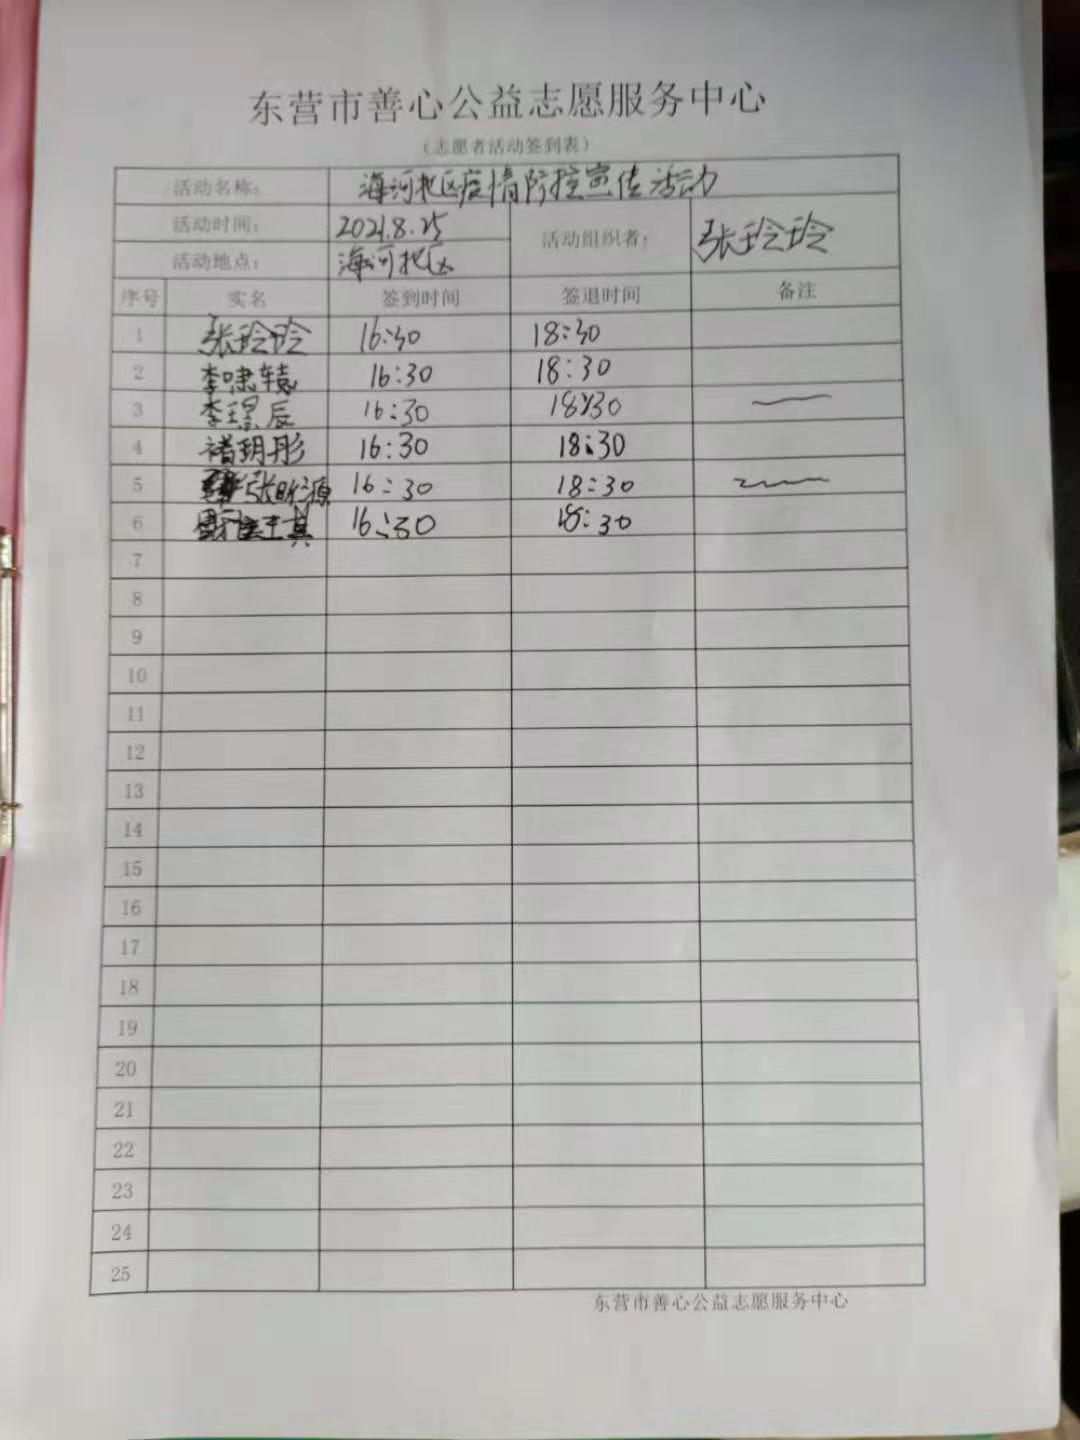 东营市善心公益志愿服务中心
（志愿者活动签到表）
活动名称： 海河北区疫情防控宣传活动
活动时间： 2021.8.25 活动组织者： 张玲玲
活动地点： 海河北区
序号 实名 签到时间 签退时间 备注
1 张玲玲 16:30 18:30
2 李啸辕 16:30 18:30
3 李璟辰 16:30 18:30
4 褚玥彤 16:30 18:30
5 张昕源 16:30 18:30
6 16:30 18:30
7
8
9
10
11
12
13
14
15
16
17
18
19
20
21
22
23
24
25
东营市善心公益志愿服务中心